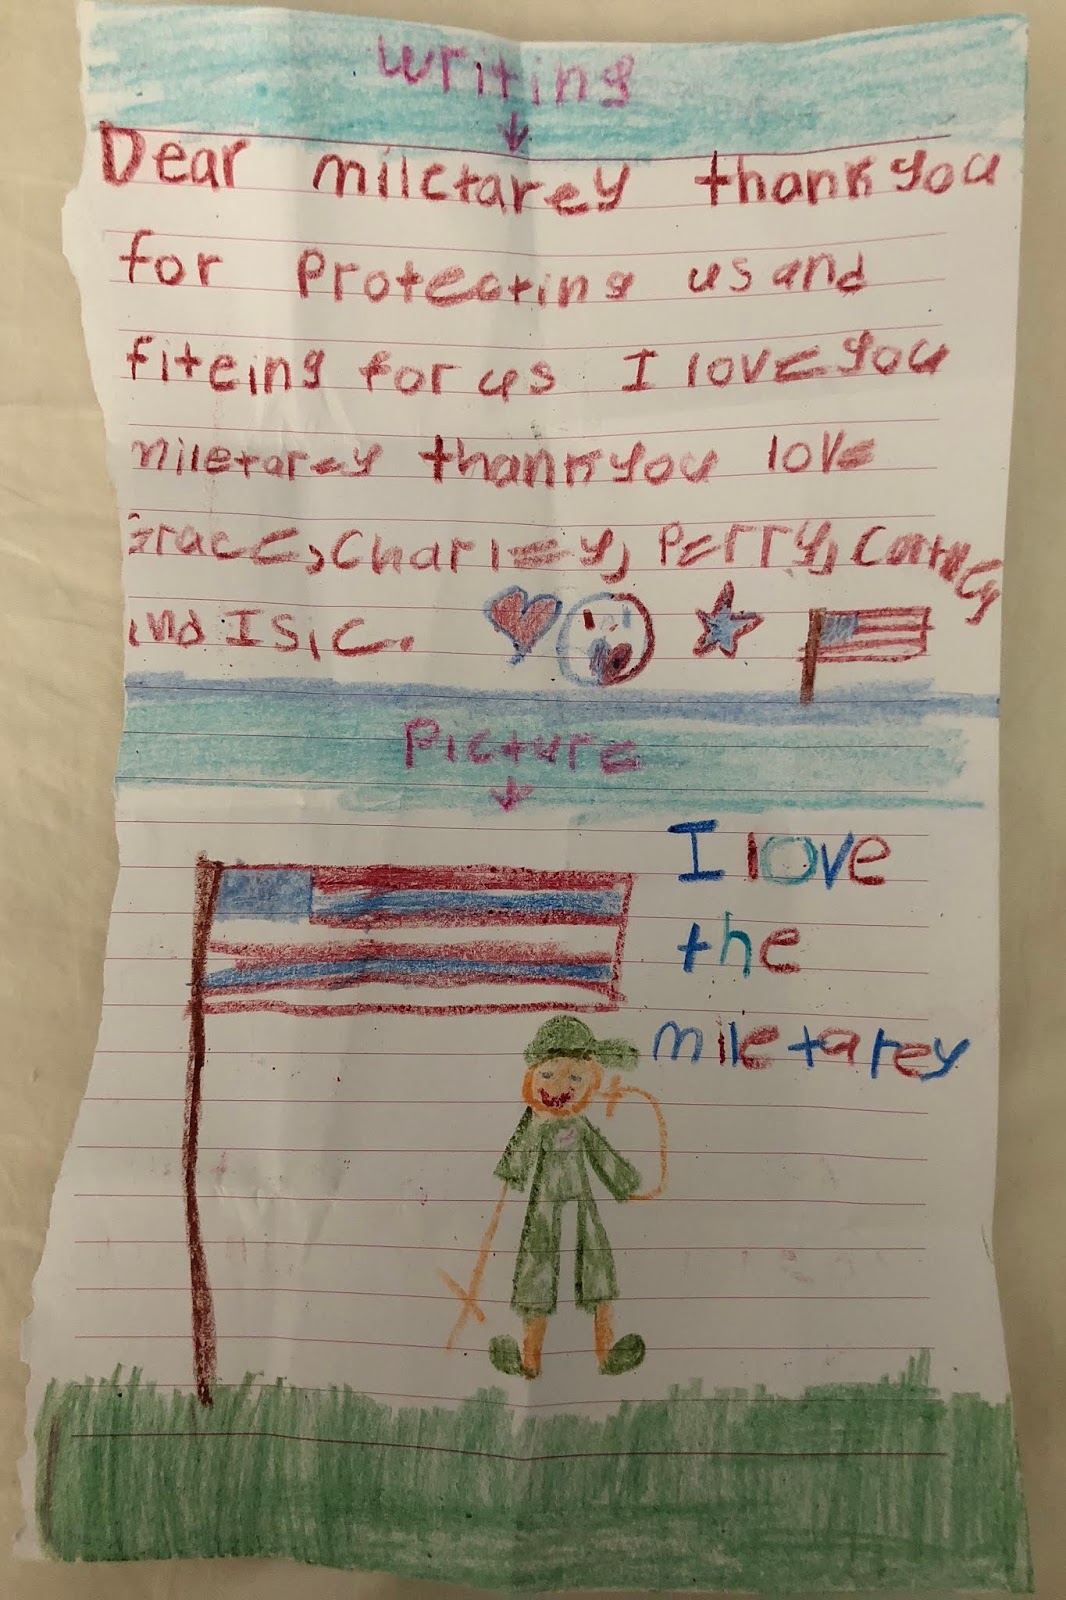 Writing
Dear miletarey thank you
for Protecting us and
fiteing for us I love you
miletarey thank you love
Grace, Charley, Perry,
and Isic.
Picture
I love
the
miletarey